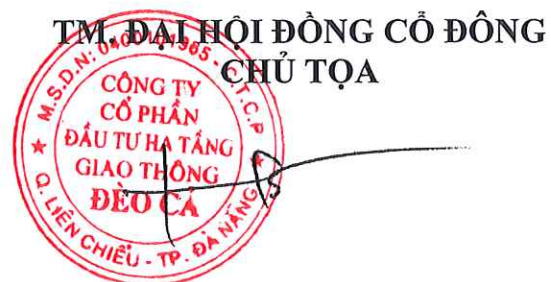 TM. ĐẠI HỘI ĐỒNG CỔ ĐÔNG
CHỦ TỌA
CÔNG TY
CỔ PHẦN
ĐẦU TƯ HẠ TẦNG
GIAO THÔNG
ĐÈO CẢ
Q. LIÊN CHIỂU - TP. ĐÀ NẴNG